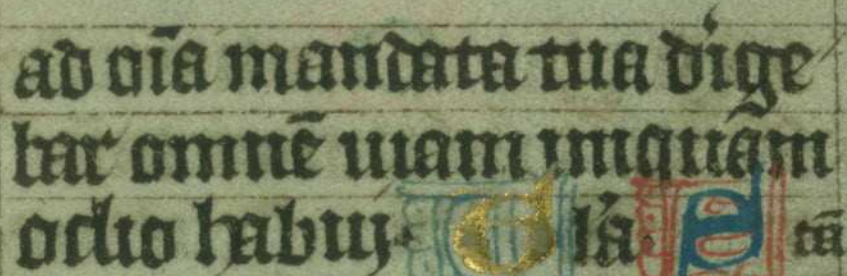 ad oīa mandata tua dige
bar omnē uiam iniquam
odio habuij. Gła. A tā